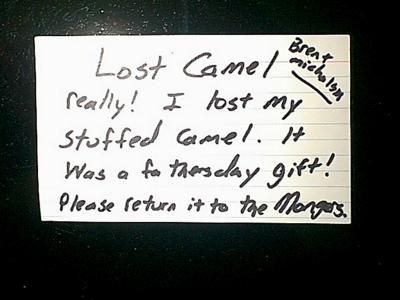 Lost Camel
Brent
michalsm
really! I lost my
stuffed camel. It
Was a fathersday gift!
Please return it to the Mangas.